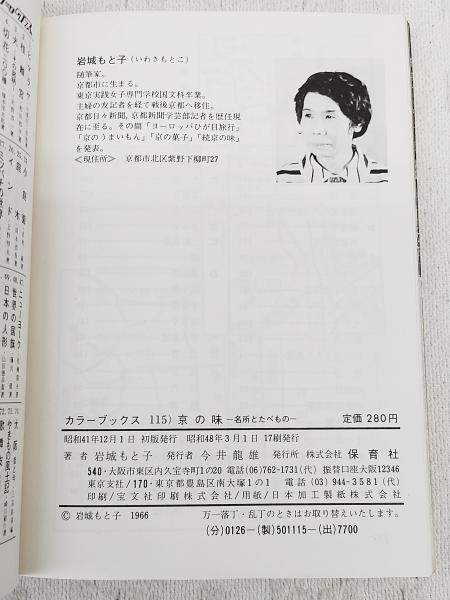 岩城もと子(いわきもとこ)
随筆家。
京都市に生まる。
東京実践女子専門学校国文科卒業。
主婦の友記者を経て戦後京都へ移住。
京都日々新聞、京都新聞学芸部記者を歴任現
在に至る。その間「ヨーロッパひが目旅行」
「京のうまいもん」「京の菓子」「続京の味」
を発表。
<現住所> 京都市北区紫野下柳町27
カラーブックス 115) 京の味 —名所とたべもの— 定価 280円
昭和41年12月1日 初版発行 昭和48年3月1日 17刷発行
著者 岩城もと子 発行者 今井龍雄 発行所 株式会社 保育社
540・大阪市東区内久宝寺町1の20 電話(06)762-1731(代) 振替口座大阪12346
東京支社/170・東京都豊島区南大塚1の1 電話(03)944-3581(代)
印刷/宝文社印刷株式会社/用紙/日本加工製紙株式会社
© 岩城もと子 1966 万一落丁・乱丁のときはお取り替えいたします。
(分)0126—(製)501115—(出)7700
ニューヨーク
世界の国旗
日本の人形
大阪
やきもの風土記